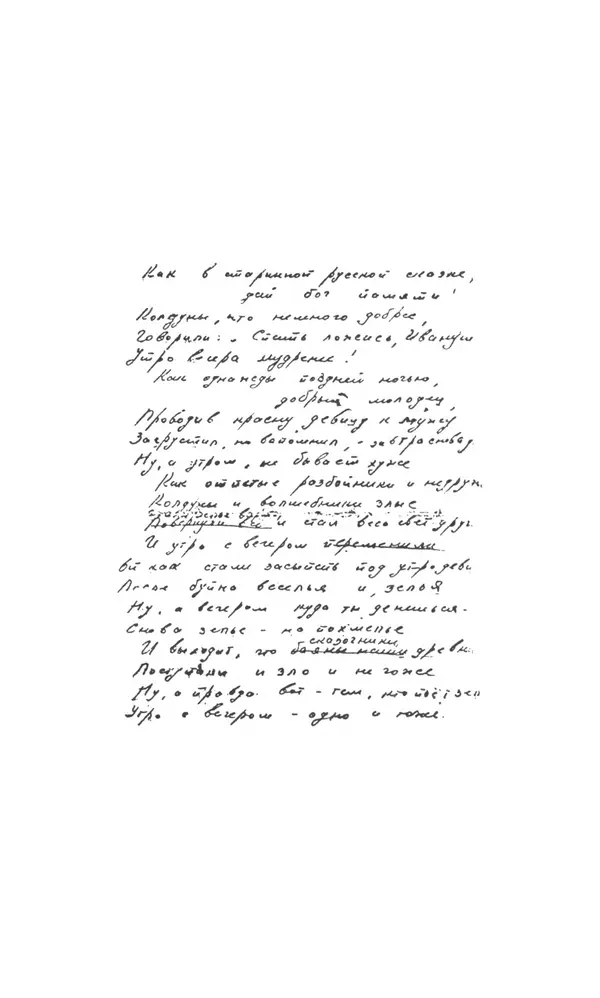 Как в старинной русской сказке,
дай бог памяти!
Колдуны, что немного добрее,
Говорили: "Спать ложись, Ивануш
Утро вечера мудренее!
Как однажды поздней ночью,
добрый молодец,
Проводив красну девицу к мужу
Загрустил, но вспомнил, - завтра снова д
Ну, а утром, не бывает хуже
Как отпетые разбойники и недруг
Колдуны и волшебники злые
и стал весь свет друг
И утро с вечером переменили
Ой как стали засыпать под утро деви
После буйна веселья и зелья
Ну, а вечером куда ты денешься -
Снова зелье - на похмелье
сказочники
И выходит, что баяны наши древн
Поступали и зло и негоже
Ну, а правда вот - тем, кто пьёт зел
Утро с вечером - одно и тоже.